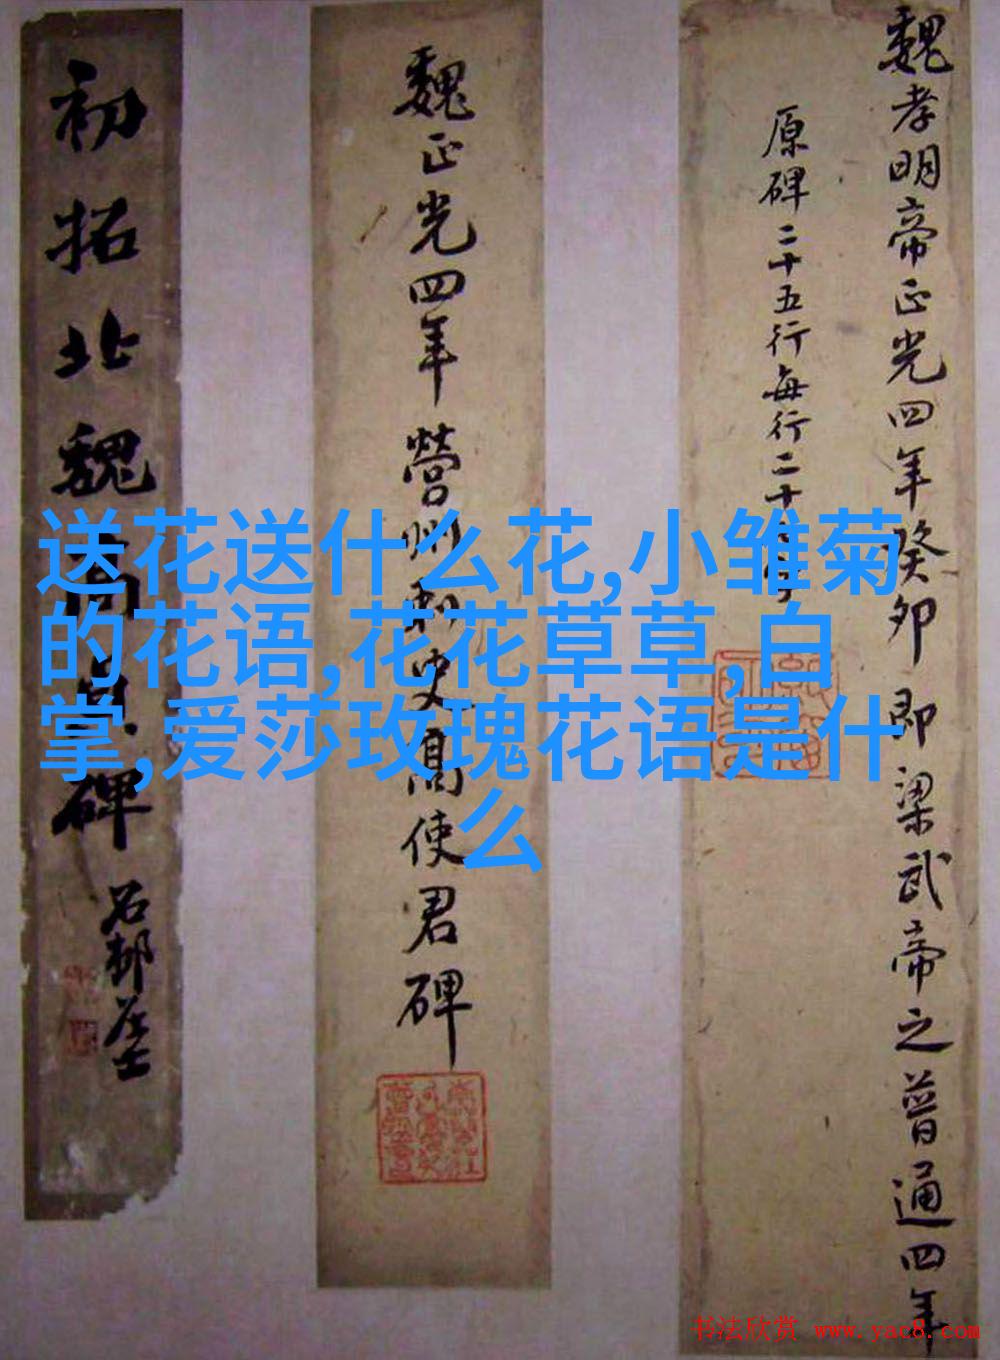 魏孝明帝正光四年癸卯即梁武帝之普通四年
原碑二十五行每行二十
魏正光四年營州刺史高使君碑
初拓北魏高貞碑
石邨居士
送花送什么花,小雏菊
的花语,花花草草,白
掌,爱莎玫瑰花语是什
么
书法欣赏 www.yac8.com